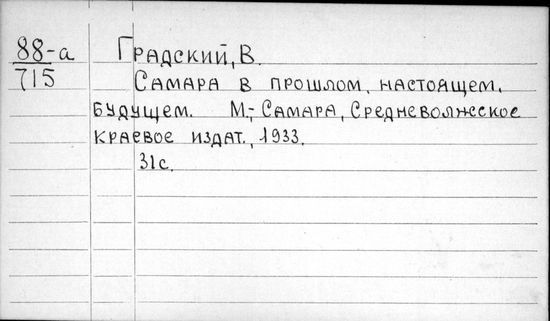 88-а Градский, В.
715 Самара в прошлом, настоящем,
будущем. М.-Самара, Средневолжское
краевое издат., 1933.
31с.